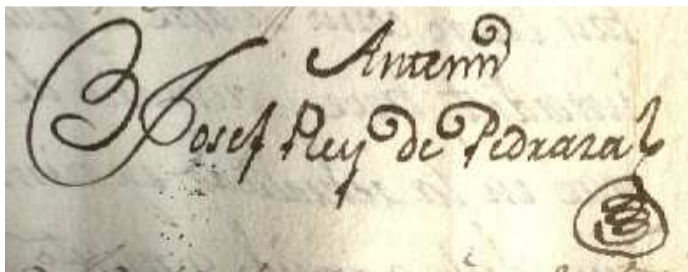 Ante mi
Josef Rey de Pedraza